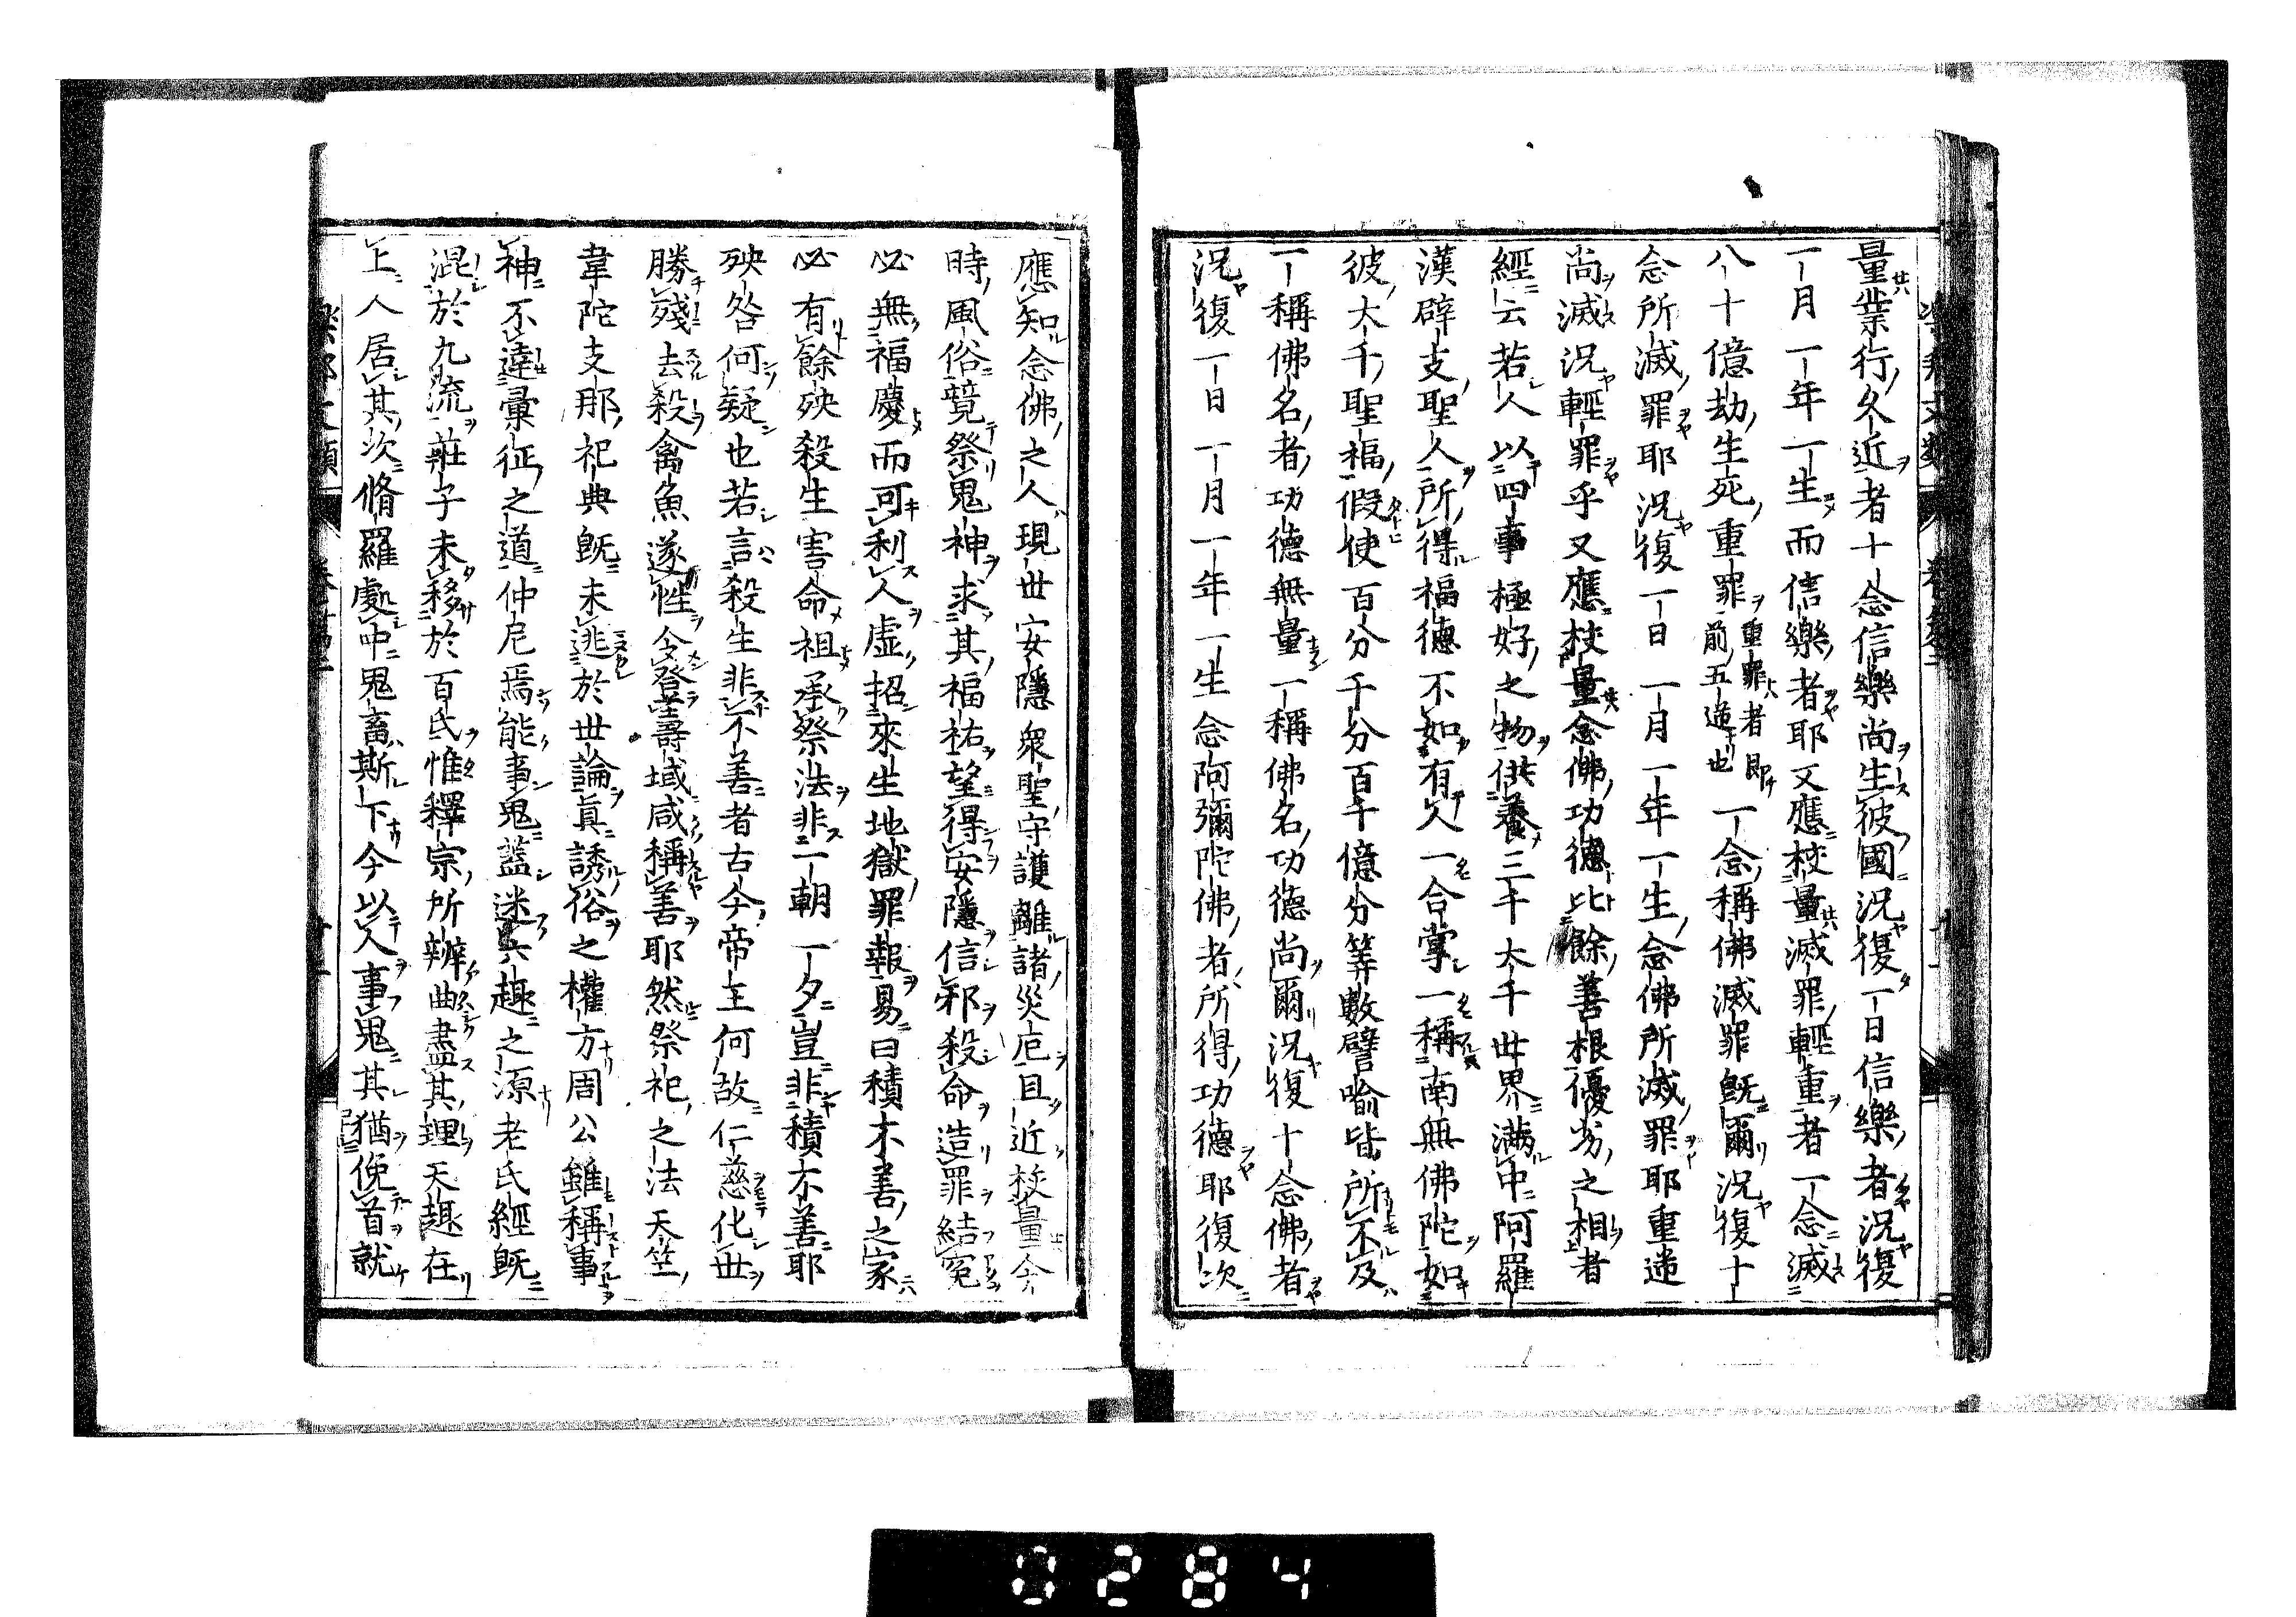 量業行久近者十念信樂尚生彼國況復一日信樂者況復
一月一年一生而信樂者耶又應校量滅罪輕重者一念滅
八十億劫生死重罪重罪者即前五逆也一念稱佛滅罪既爾況復十
念所滅罪耶況復一日一月一年一生念佛所滅罪耶重逆
尚滅況輕罪乎又應校量念佛功德比餘善根優劣之相者
經云若人以四事極好之物供養三千大千世界滿中阿羅
漢辟支聖人所得福德不如有人一合掌一稱南無佛陀如
彼大千聖福假使百分千分百千億分筭數譬喻皆所不及
一稱佛名者功德無量一稱佛名功德尚爾況復十念佛者
況復一日一月一年一生念阿彌陀佛者所得功德耶復次
應知念佛之人現世安隱衆聖守護離諸災厄且近校量今
時風俗競祭鬼神求其福祐望得安隱信邪殺命造罪結冤
必無福慶而可利人虛招來生地獄罪報易曰積不善之家
必有餘殃殺生害命祖承祭法非一朝一夕豈非積不善耶
殃咎何疑也若言殺生非不善者古今帝王何故仁慈化世
勝殘去殺禽魚遂性令登壽域咸稱善耶然祭祀之法天竺
韋陀支那祀典既未逃於世論真誘俗之權方周公雖稱事
神不達彙征之道仲尼焉能事鬼蓋迷六趣之源老氏經既
混於九流莊子未移於百氏惟釋宗所辨曲盡其理天趣在
上人居其次脩羅處中鬼畜斯下今以人事鬼其猶俛首就
卷第二
0284